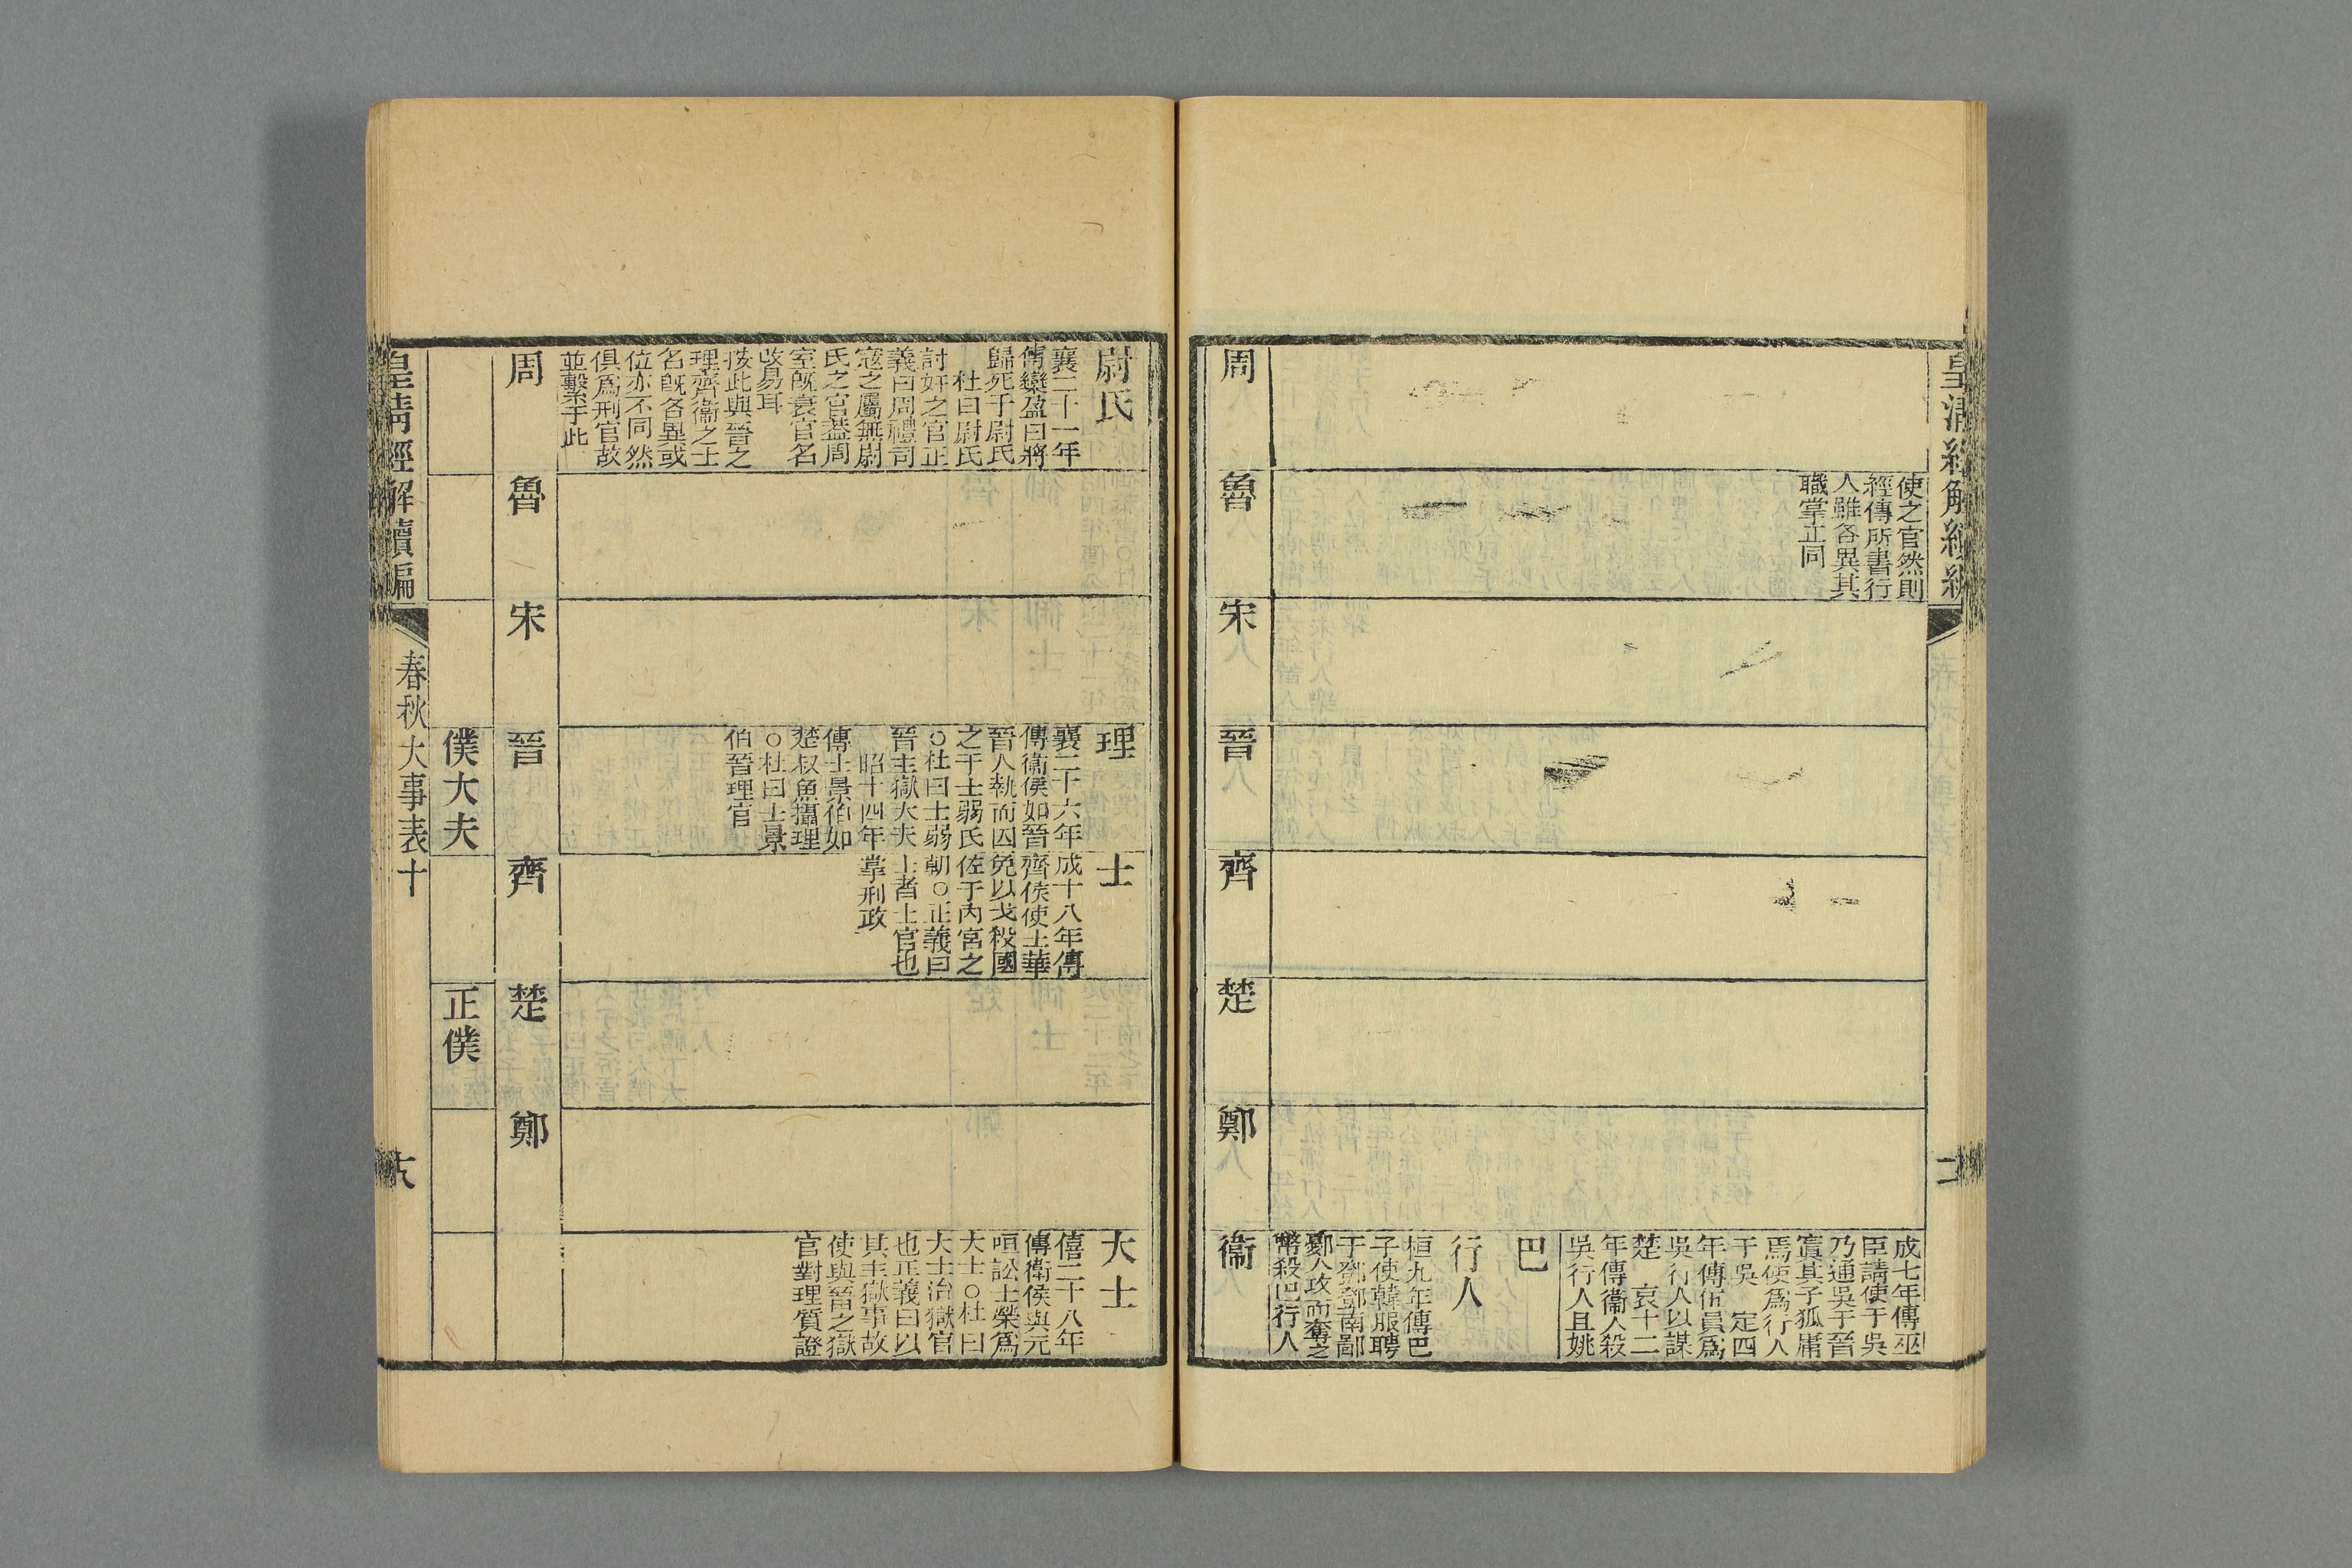 皇清經解續編
使之官然則
經傳所書行
人雖各異其
職掌正同
成七年傳巫
臣請使于吳
乃通吳于晉
寘其子狐庸
焉使爲行人
于吳　定四
年傳伍員爲
吳行人以謀
楚　哀十二
年傳衞人殺
吳行人且姚
巴
行人
桓九年傳巴
子使韓服聘
于鄧鄧南鄙
鄾人攻而奪之
幣殺巴行人
周
魯
宋
晉
齊
楚
鄭
衞
尉氏
襄二十一年
傳欒盈曰將
歸死于尉氏
杜曰尉氏
討奸之官正
義曰周禮司
寇之屬無尉
氏之官蓋周
室旣衰官名
改易耳
按此與晉之
理齊衞之士
名旣各異或
位亦不同然
俱爲刑官故
並繫于此
理
襄二十六年
傳衞侯如晉
晉人執而囚
之于士弱氏
○杜曰士弱
晉主獄大夫
昭十四年
傳士景伯如
楚叔魚攝理
○杜曰士景
伯晉理官
士
成十八年傳
齊侯使士華
免以戈殺國
佐于內宮之
朝○正義曰
士者士官也
掌刑政
大士
僖二十八年
傳衛侯與元
咺訟士榮爲
大士○杜曰
大士治獄官
也正義曰以
其主獄事故
使與晉之獄
官對理質證
周
魯
宋
晉
齊
楚
鄭
僕大夫
正僕
皇清經解續編
春秋大事表十